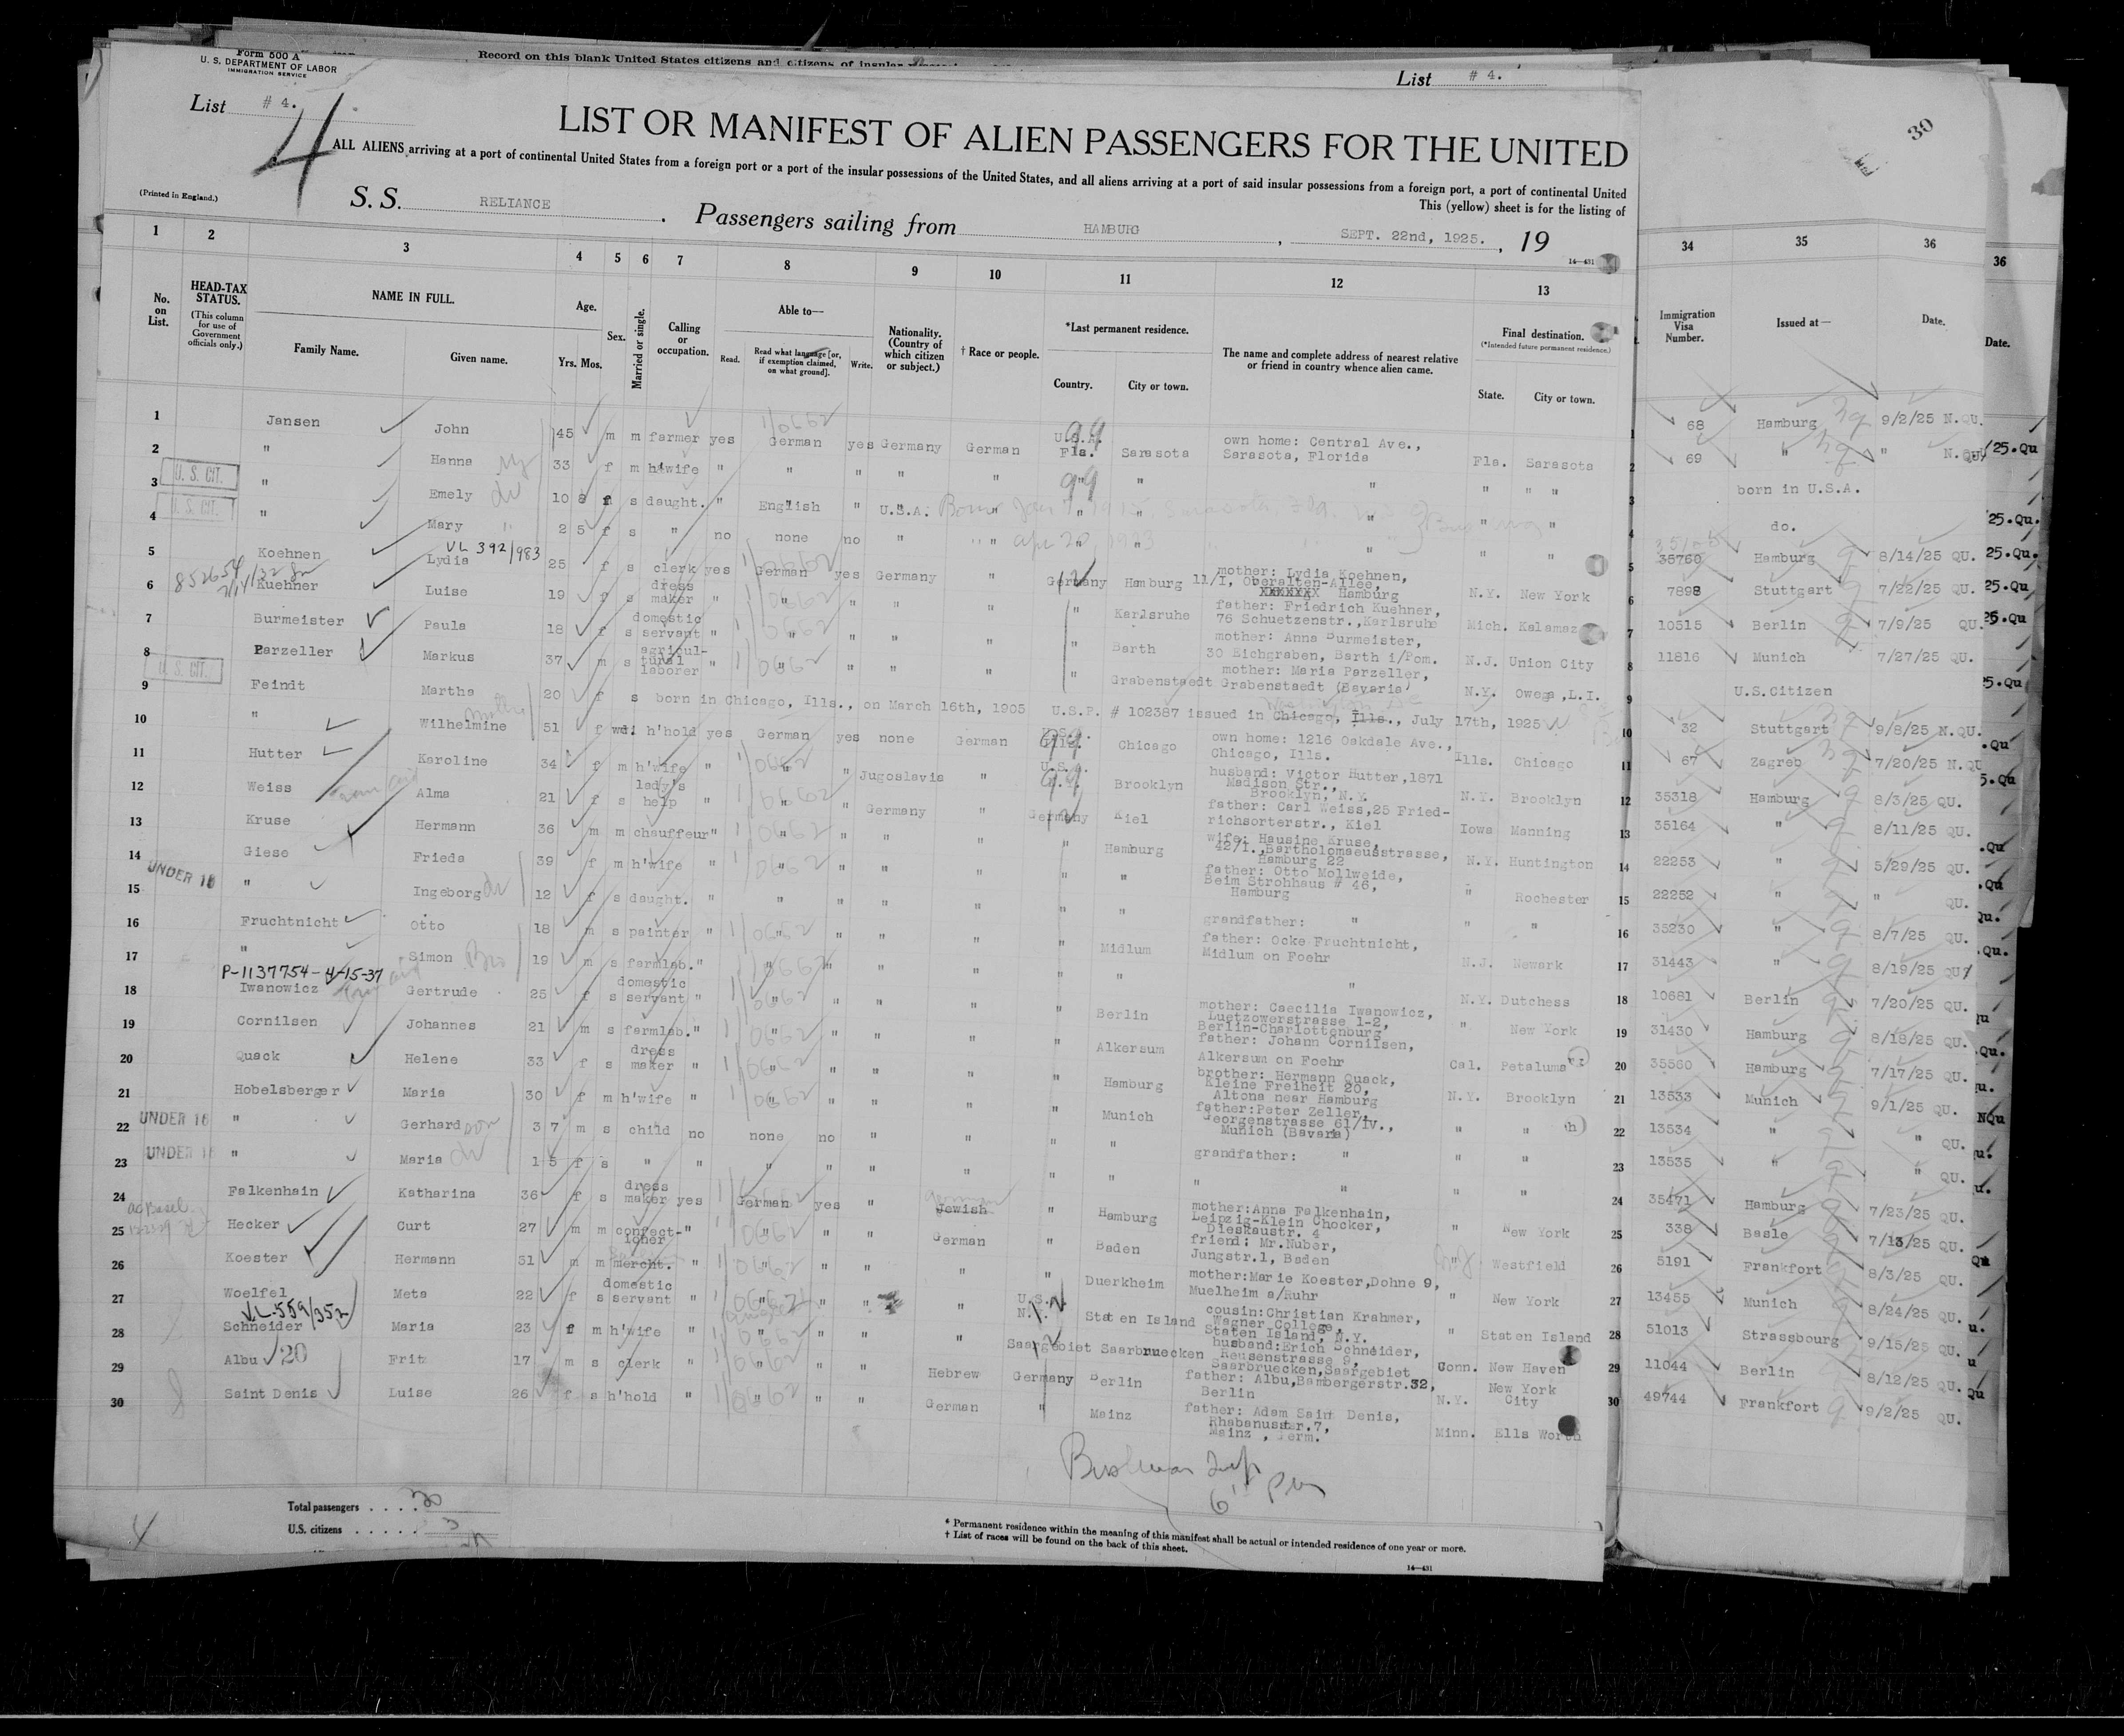 Form 500 A
U. S. DEPARTMENT OF LABOR
IMMIGRATION SERVICE
Record on this blank United States citizens and citizens of insular
List # 4.
List # 4.
4
30
LIST OR MANIFEST OF ALIEN PASSENGERS FOR THE UNITED
ALL ALIENS arriving at a port of continental United States from a foreign port or a port of the insular possessions of the United States, and all aliens arriving at a port of said insular possessions from a foreign port, a port of continental United
This (yellow) sheet is for the listing of
(Printed in England.)
S. S. RELIANCE . Passengers sailing from HAMBURG , SEPT. 22nd, 1925. , 19
14—431
1 2 3 4 5 6 7 8 9 10 11 12 13 34 35 36 36
No. on List.
HEAD-TAX STATUS.
(This column for use of Government officials only.)
NAME IN FULL.
Family Name. Given name.
Age.
Yrs. Mos.
Sex.
Married or single.
Calling or occupation.
Able to—
Read. Read what language [or, if exemption claimed, on what ground]. Write.
Nationality. (Country of which citizen or subject.)
† Race or people.
*Last permanent residence.
Country. City or town.
The name and complete address of nearest relative or friend in country whence alien came.
Final destination.
(*Intended future permanent residence.)
State. City or town.
Immigration Visa Number.
Issued at—
Date.
Date.
1 Jansen John 45 m m farmer yes German yes Germany German U.S.A. Fla. Sarasota own home: Central Ave., Sarasota, Florida Fla. Sarasota 1 68 Hamburg 9/2/25 N.QU.
2 " Hanna 33 f m h'wife " " " " " " " " " " 2 69 " " N.QU
3 U. S. CIT. " Emely 10 8 f s daught. " English " U.S.A. " " " " " " 3 born in U.S.A.
Born Jan 1915, Sarasota, Fla.
4 U. S. CIT. " Mary 2 5 f s " no none no " " " " " " 4 do.
VL 392/983
5 Koehnen Lydia 25 f s clerk yes German yes Germany " Germany Hamburg mother: Lydia Koehnen, 11/I, Oberalten-Allee, Hamburg N.Y. New York 5 35760 Hamburg 8/14/25 QU.
852654
6 Kuehner Luise 19 f s dress maker " " " " " " Karlsruhe father: Friedrich Kuehner, 76 Schuetzenstr., Karlsruhe Mich. Kalamaz 6 7898 Stuttgart 7/22/25 QU.
7 Burmeister Paula 18 f s domestic servant " " " " " " Barth mother: Anna Burmeister, 30 Eichgraben, Barth i/Pom. N.J. Union City 7 10515 Berlin 7/9/25 QU.
8 Parzeller Markus 37 m s agricul- tural laborer " " " " " " Grabenstaedt mother: Maria Parzeller, Grabenstaedt (Bavaria) N.Y. Owega, L.I. 8 11816 Munich 7/27/25 QU.
9 U. S. CIT. Feindt Martha 20 f s born in Chicago, Ills., on March 16th, 1905 U.S.P. # 102387 issued in Chicago, Ills., July 17th, 1925 9 U.S.Citizen
10 " Wilhelmine mother 51 f wd. h'hold yes German yes none German U.S.A. Ills. Chicago own home: 1216 Oakdale Ave., Chicago, Ills. Ills. Chicago 10 32 Stuttgart 9/8/25 N.QU.
11 Hutter Karoline 34 f m h'wife " " " Jugoslavia " U.S.A. N.Y. Brooklyn husband: Victor Hutter, 1871 Madison Str., Brooklyn, N.Y. N.Y. Brooklyn 11 67 Zagreb 7/20/25 N.QU
12 Weiss Alma 21 f s lady's help " " " Germany " Germany Kiel father: Carl Weiss, 25 Fried- richsorterstr., Kiel Iowa Manning 12 35318 Hamburg 8/3/25 QU.
13 Kruse Hermann 36 m m chauffeur " " " " " " Hamburg wife: Hausine Kruse, 42/I., Bartholomaeusstrasse, Hamburg 22 N.Y. Huntington 13 35164 " 8/11/25 QU.
14 Giese Frieda 39 f m h'wife " " " " " " " father: Otto Mollweide, Beim Strohhaus # 46, Hamburg " Rochester 14 22253 " 5/29/25 QU.
15 UNDER 16 " Ingeborg 12 f s daught. " " " " " " " grandfather: " " " 15 22252 " " QU.
16 Fruchtnicht Otto 18 m s painter " " " " " " Midlum father: Ocke Fruchtnicht, Midlum on Foehr N.J. Newark 16 35230 " 8/7/25 QU.
17 " Simon Bro 19 m s farmlab. " " " " " " " " N.Y. Dutchess 17 31443 " 8/19/25 QU
P-1137754-4-15-37
18 Iwanowicz Gertrude 25 f s domestic servant " " " " " " Berlin mother: Caecilia Iwanowicz, Luetzowerstrasse 1-2, Berlin-Charlottenburg " New York 18 10681 Berlin 7/20/25 QU.
19 Cornilsen Johannes 21 m s farmlab. " " " " " " Alkersum father: Johann Cornilsen, Alkersum on Foehr Cal. Petaluma 19 31430 Hamburg 8/18/25 QU.
20 Quack Helene 33 f s dress maker " " " " " " Hamburg brother: Hermann Quack, Kleine Freiheit 20, Altona near Hamburg N.Y. Brooklyn 20 35560 Hamburg 7/17/25 QU.
21 Hobelsberger Maria 30 f m h'wife " " " " " " Munich father: Peter Zeller, Georgenstrasse 61/IV., Munich (Bavaria) " " 21 13533 Munich 9/1/25 QU.
22 UNDER 16 " Gerhard son 3 7 m s child no none no " " " " grandfather: " " " 22 13534 " " QU.
23 UNDER 16 " Maria 1 5 f s " " " " " " " " " " " " 23 13535 " " QU.
24 Falkenhain Katharina 36 f s dress maker yes German yes " Jewish " Hamburg mother: Anna Falkenhain, Leipzig-Klein Chocker, Dieskaustr. 4 " New York 24 35471 Hamburg 7/23/25 QU.
25 Hecker Curt 27 m m confect- ioner " " " " German " Baden friend: Mr. Nuber, Jungstr.1, Baden " Westfield 25 338 Basle 7/13/25 QU.
26 Koester Hermann 31 m m mercht. " " " " " " Duerkheim mother: Marie Koester, Dohne 9, Muelheim a/Ruhr " New York 26 5191 Frankfort 8/3/25 QU.
27 Woelfel Meta 22 f s domestic servant " " " " U.S. N.Y. Staten Island cousin: Christian Krahmer, Wagner College, Staten Island, N.Y. " Staten Island 27 13455 Munich 8/24/25 QU.
VL-559/352
28 Schneider Maria 23 f m h'wife " " " " Saargebiet Saarbruecken husband: Erich Schneider, Reusenstrasse 9, Saarbruecken, Saargebiet Conn. New Haven 28 51013 Strassbourg 9/15/25 QU.
29 Albu Fritz 17 m s clerk " " " " Hebrew Germany Berlin father: Albu, Bambergerstr.32, Berlin N.Y. New York City 29 11044 Berlin 8/12/25 QU.
30 Saint Denis Luise 26 f s h'hold " " " " German " Mainz father: Adam Saint Denis, Rhabanusstr.7, Mainz, Germ. Minn. Ells Worth 30 49744 Frankfort 9/2/25 QU.
Total passengers . . . . 30
U.S. citizens . . . . . 3
* Permanent residence within the meaning of this manifest shall be actual or intended residence of one year or more.
† List of races will be found on the back of this sheet.
14—431